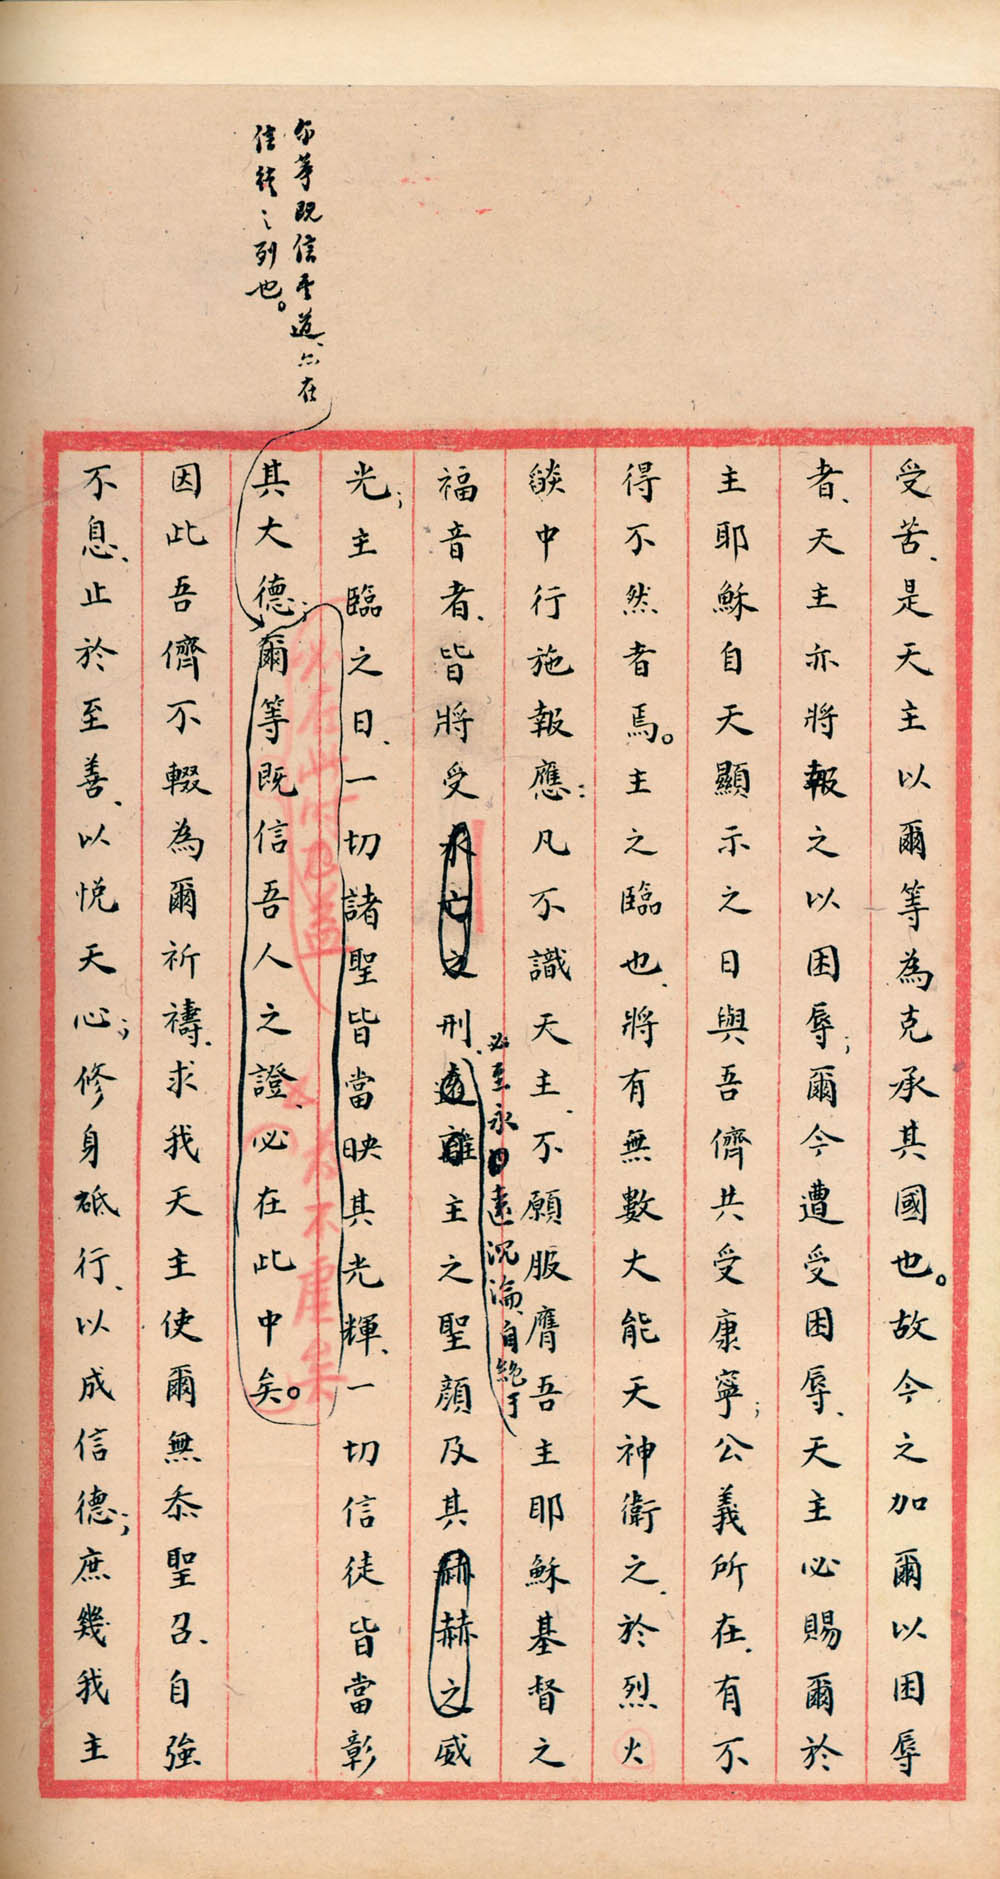 受苦、是天主以爾等為克承其國也。故今之加爾以困辱
者、天主亦將報之以困辱；爾今遭受困辱、天主必賜爾於
主耶穌自天顯示之日與吾儕共受康寧；公義所在、有不
得不然者焉。主之臨也、將有無數大能天神衛之、於烈火
燄中行施報應：凡不識天主、不願服膺吾主耶穌基督之
必至永日遠沉淪、自絶于
福音者、皆將受永亡之刑、遠離主之聖顏及其赫赫之威
光；主臨之日、一切諸聖皆當映其光輝、一切信徒皆當彰
尔等既信吾道、亦在
信徒之列也。
其大德；爾等既信吾人之證、必在此中矣。
因此吾儕不輟為爾祈禱、求我天主使爾無忝聖召、自強
不息、止於至善、以悅天心；修身砥行、以成信德；庶幾我主